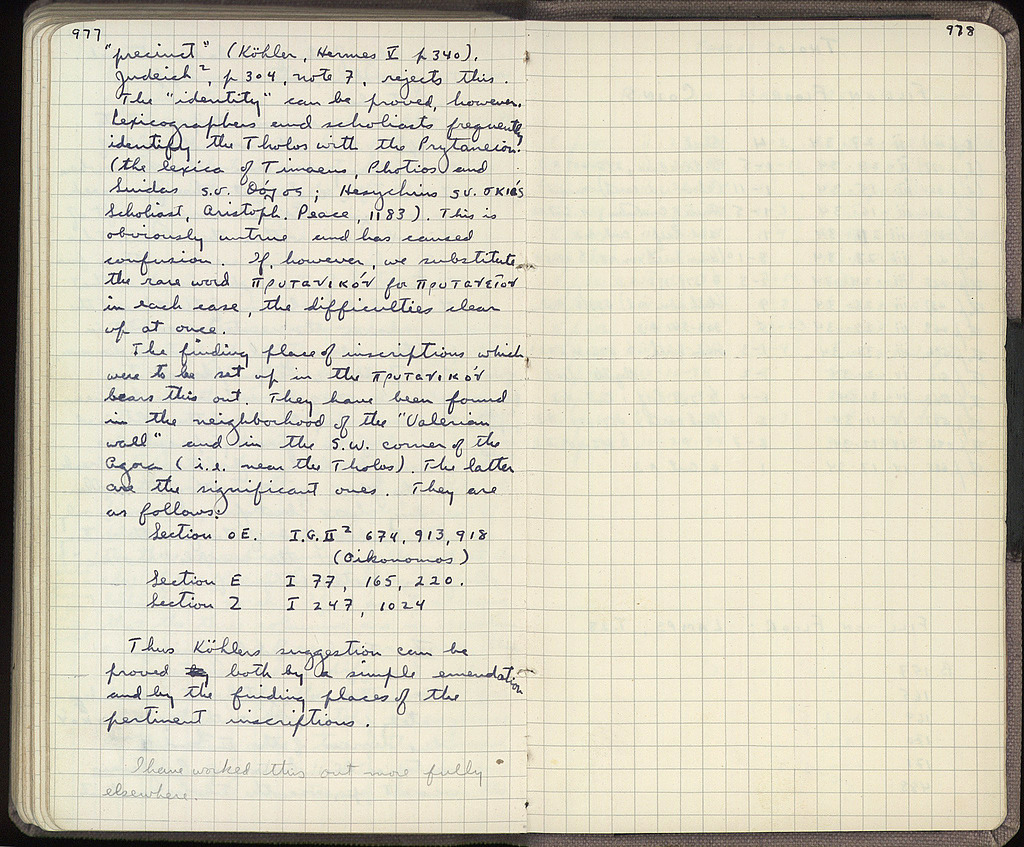 977
"precinct" (Köhler, Hermes V p 340).
Judeich², p 304, note 7, rejects this.
The "identity" can be proved, however.
Lexicographers and scholiasts frequently
identify the Tholos with the Prytaneion!
(the lexica of Timaeus, Photios and
Suidas s.v. Θόλος; Hesychius s.v. σκιάς
Scholiast, Aristoph. Peace, 1183). This is
obviously untrue and has caused
confusion. If, however, we substitute
the rare word πρυτανικόν for πρυτανεῖον
in each case, the difficulties clear
up at once.
The finding place of inscriptions which
were to be set up in the πρυτανικόν
bears this out. They have been found
in the neighborhood of the "Valerian
wall" and in the S.W. corner of the
Agora (i.e. near the Tholos). The latter
are the significant ones. They are
as follows:
Section OE. I.G. II² 674, 913, 918
(Oikonomos)
Section E I 77, 165, 220.
Section Z I 247, 1024
Thus Köhlers suggestion can be
proved both by a simple emendation
and by the finding places of the
pertinent inscriptions.
I have worked this out more fully
elsewhere.
978